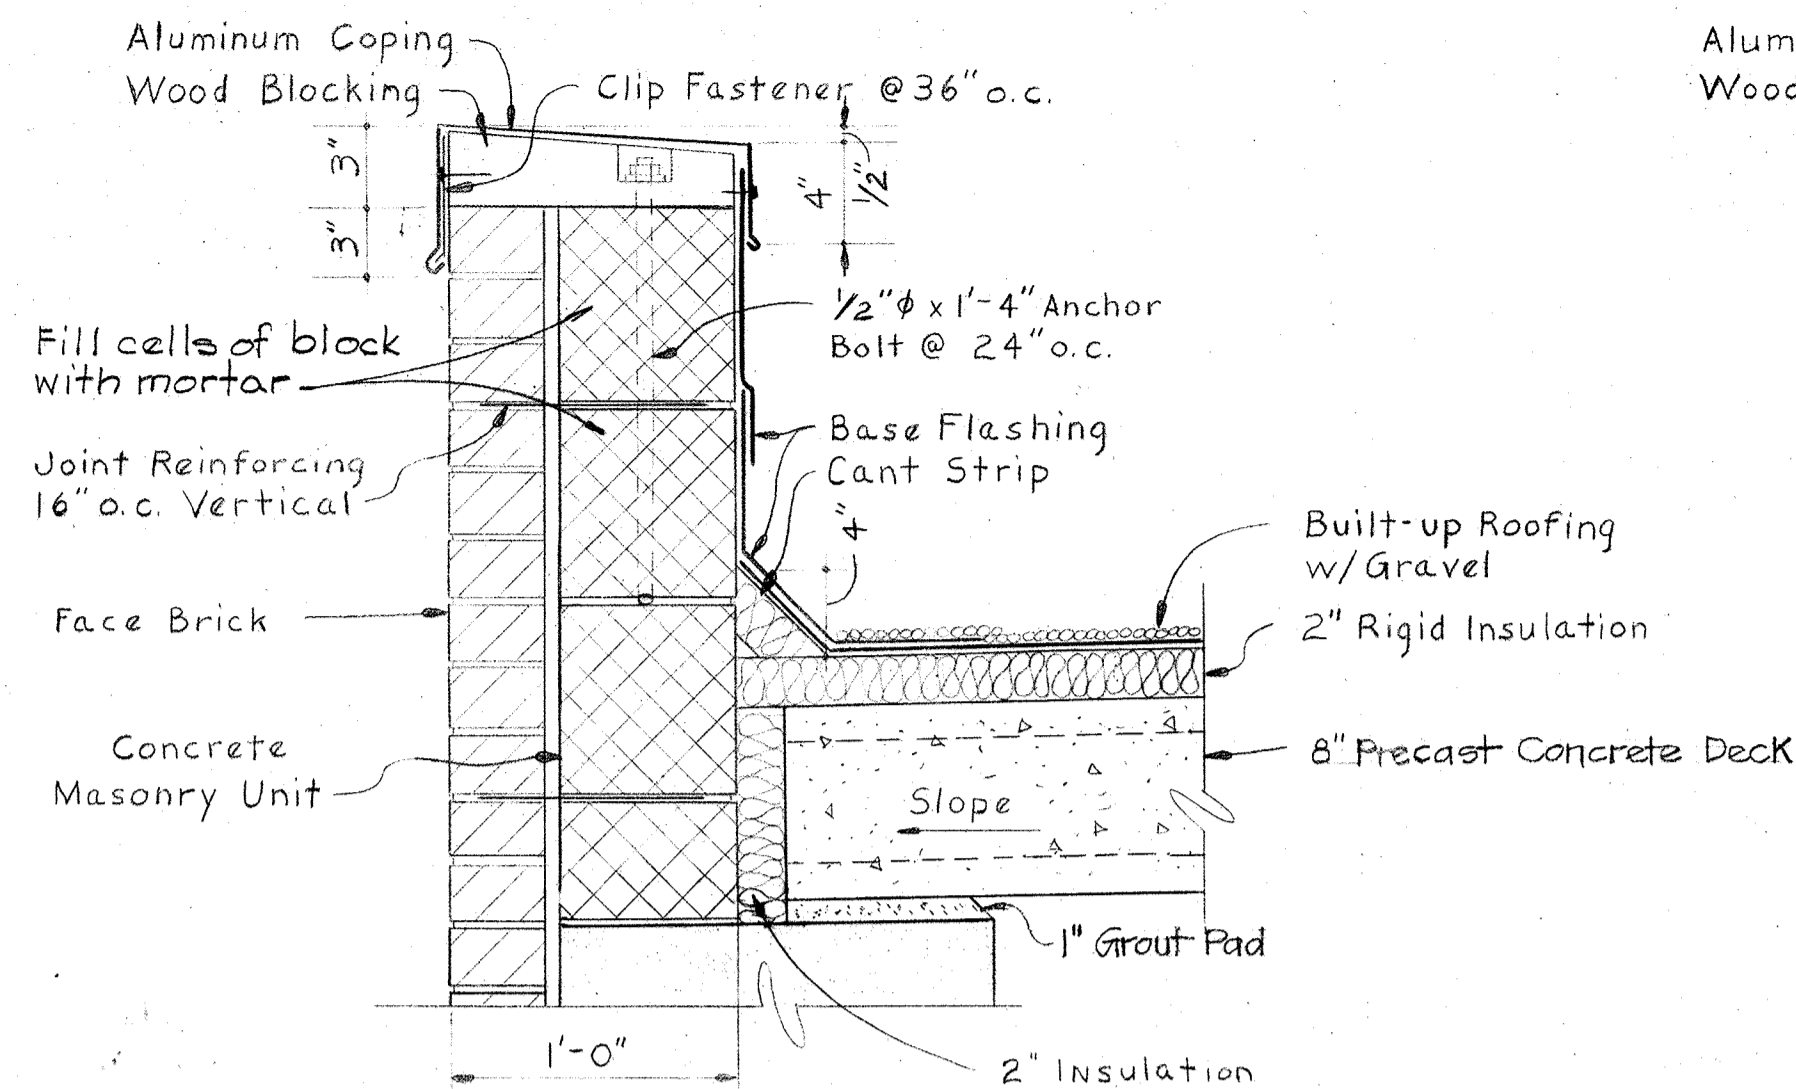 Aluminum Coping
Wood Blocking
Clip Fastener @ 36" o.c.
Alum
Wood
3"
3"
4"
1/2"
1/2"ϕ x 1'-4" Anchor
Bolt @ 24" o.c.
Fill cells of block
with mortar
Joint Reinforcing
16" o.c. Vertical
Base Flashing
Cant Strip
4"
Built-up Roofing
w/Gravel
Face Brick
2" Rigid Insulation
Concrete
Masonry Unit
8" Precast Concrete Deck
Slope
1" Grout Pad
1'-0"
2" Insulation